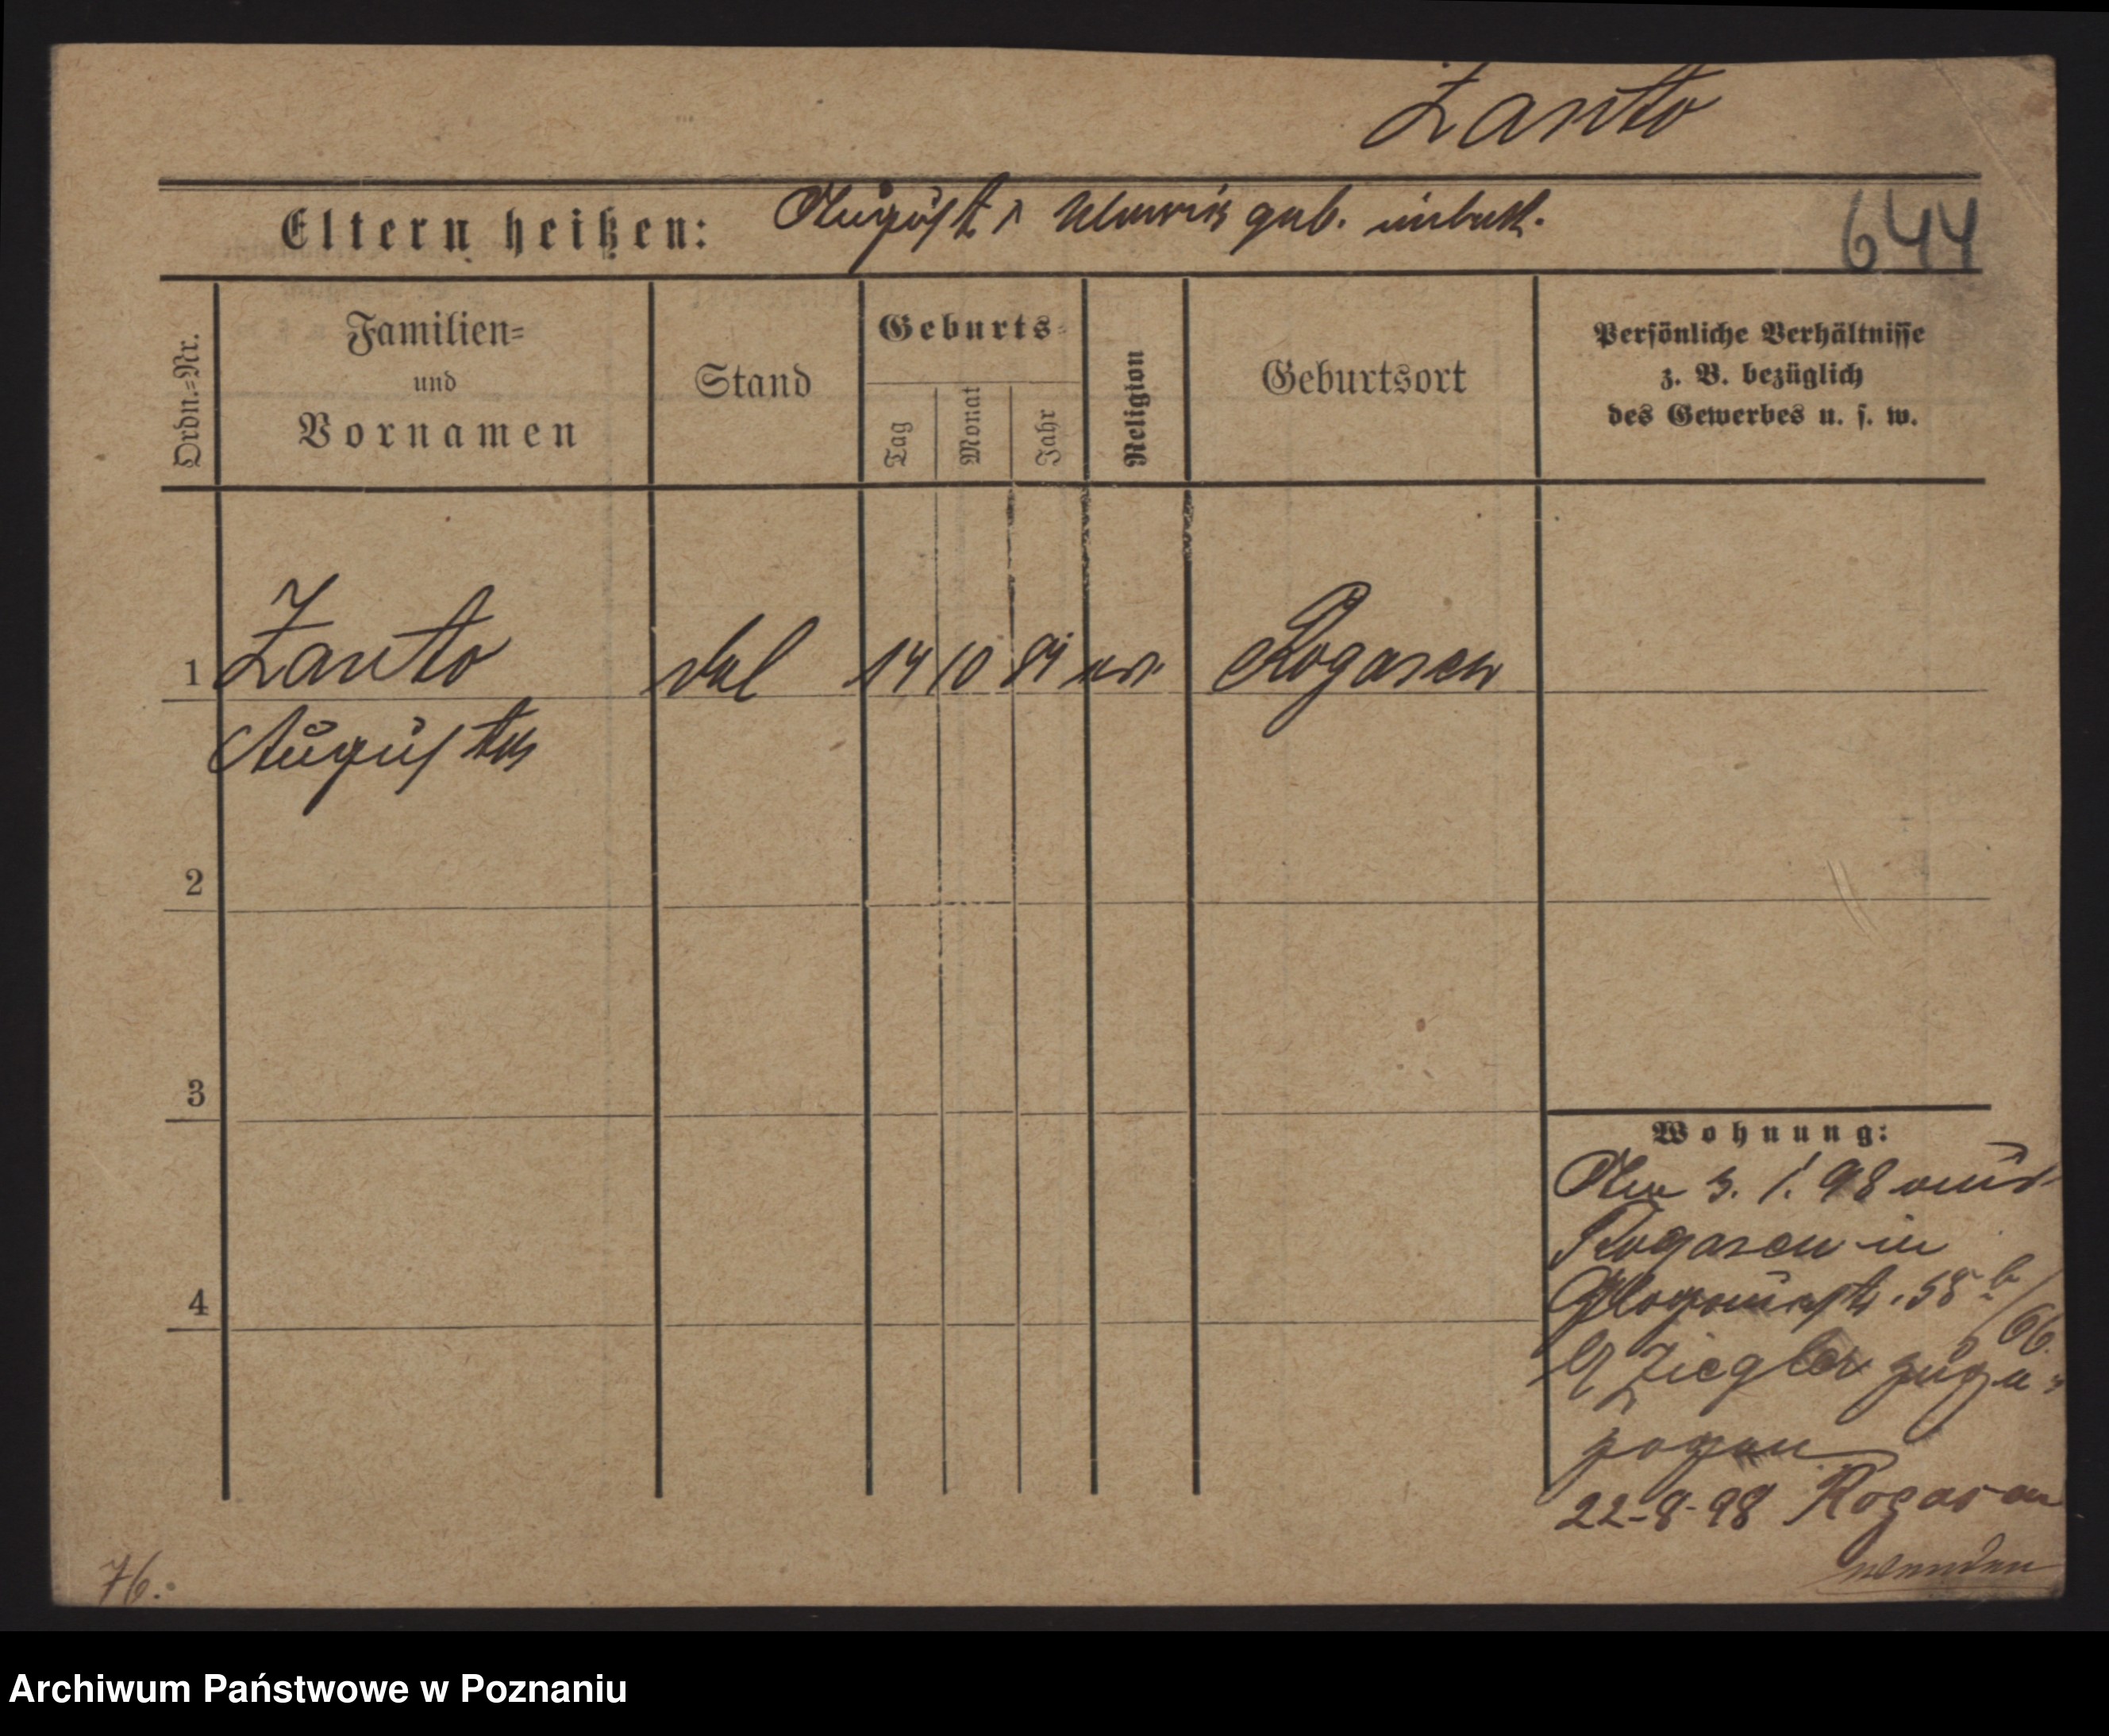 Zanto
Eltern heißen: August u geb. unbek.
644
Ordn.=Nr.
Familien=
und
Vornamen
Stand
Geburts=
Tag
Monat
Jahr
Religion
Geburtsort
Persönliche Verhältnisse
z. B. bezüglich
des Gewerbes u. s. w.
1 Zanto 14 10 84 ev. Rogasen
Auguste
2
3
4
Wohnung:
Am 3. 1. 98 aus
Rogasen in
Glogauerstr. 58 b/66
b/ Ziegler zuge=
zogen
22-8-98 Rogasen
wenden
76.
Archiwum Państwowe w Poznaniu